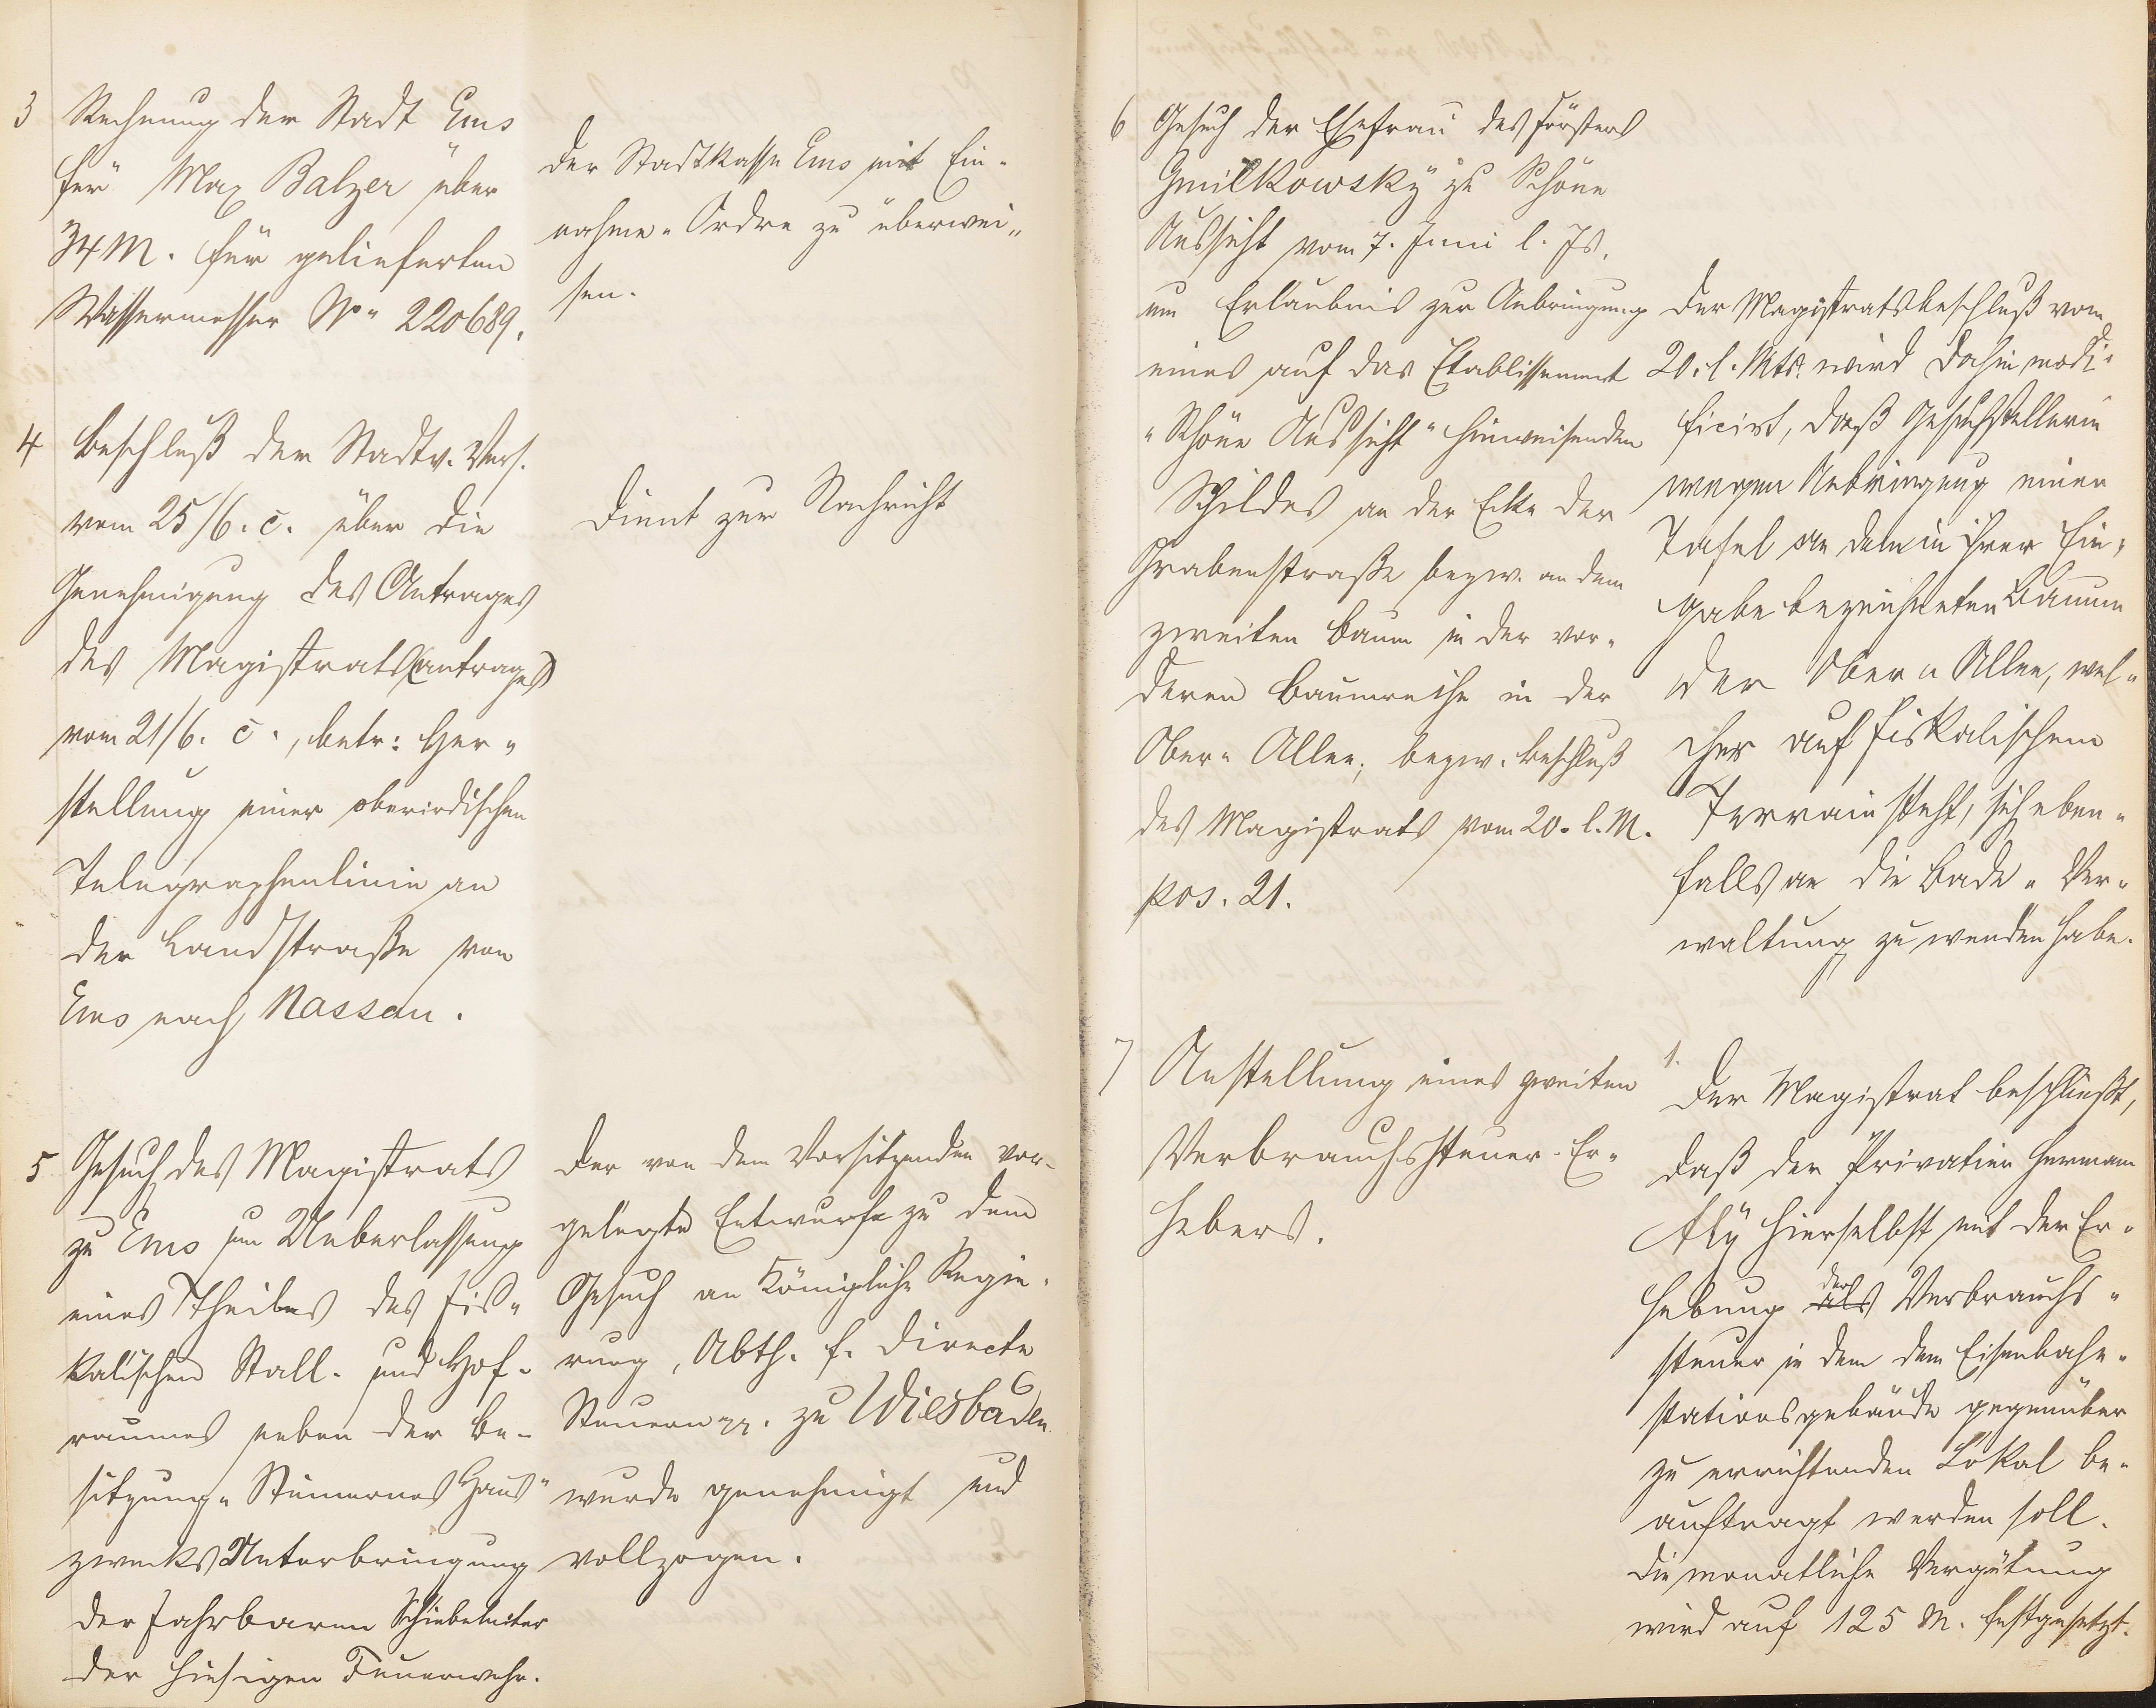 3 Rechnung der Stadt Ems
für Max Balzer über
34 M. für gelieferten
Wassermesser No 220689.
der Stadtkasse Ems mit Ein-
nahme-Ordre zu überwei-
sen.
4 Beschluß der Stadtv. Vers.
vom 25/6. c. über die
Genehmigung des Antrages
des Magistrats (antrages)
vom 21/6. c., betr: Her-
stellung einer oberirdischen
Telegraphenlinie an
der Landstraße von
Ems nach Nassau.
dient zur Nachricht
5 Gesuch des Magistrats
zu Ems um Ueberlassung
eines Theiles des fis-
kalischen Stall- und Hof-
raumes neben der Be-
sitzung "Steinernes Haus"
zwecks Unterbringung
der fahrbaren Schiebeleiter
der hiesigen Feuerwehr.
Der von dem Vorsitzenden vor-
gelegte Entwurf zu dem
Gesuch an Königliche Regie-
rung, Abth. f. directe
Steuern pp. zu Wiesbaden
wurde genehmigt und
vollzogen.
6 Gesuch der Ehefrau des Försters
Gmilkowsky zu Schöne
Aussicht vom 7. Juni l. Js.
um Erlaubnis zur Anbringung
eines auf das Etablissement
"Schöne Aussicht" hinweisenden
Schildes an der Ecke der
Grabenstraße bezw. an dem
zweiten Baum in der vor-
deren Baumreihe in der
Ober-Allee; bezw. Beschluß
des Magistrats vom 20. l. M.
pos. 21.
Der Magistratsbeschluß vom
20. l. Mts. wird dahin modi-
ficirt, daß Gesuchstellerin
wegen Anbringung einer
Tafel an dem in ihrer Ein-
gabe bezeichneten Baume
der Ober-Allee, wel-
cher auf fiskalischem
Terrain steht, sich eben-
falls an die Bade-Ver-
waltung zu wenden habe.
7 Anstellung eines zweiten
Verbrauchssteuer-Er-
hebers.
1.
Der Magistrat beschließt,
daß der Privatier Hermann
Aly hierselbst mit der Er-
hebung als der Verbrauchs-
steuer in dem dem Eisenbahn-
stationsgebäude gegenüber
zu errichtenden Lokal be-
auftragt werden soll.
Die monatliche Vergütung
wird auf 125 M. festgesetzt.